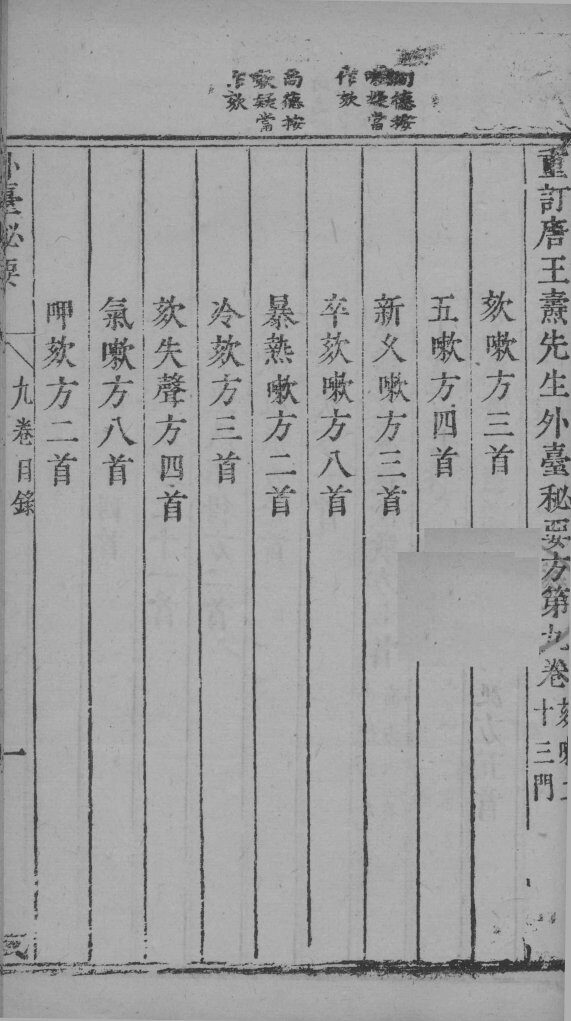 重訂唐王燾先生外臺秘要方第九卷
十三門
欬嗽方三首
五嗽方四首
新久嗽方三首
卒欬嗽方八首
暴熱嗽方二首
冷欬方三首
欬失聲方四首
氣嗽方八首
呷欬方二首
尚德按
嗽疑當
作欬
尚德按
嗽疑當
作欬
外臺秘要
九卷目錄
一